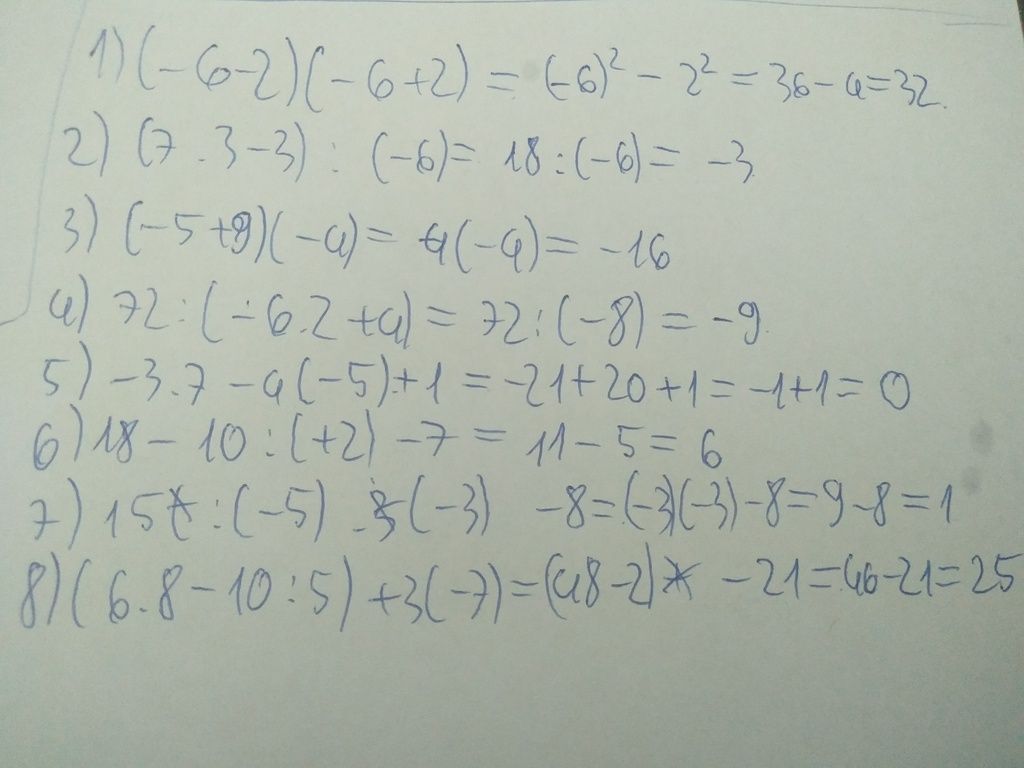 1) (-6-2)(-6+2) = (-6)² - 2² = 36-4=32.
2) (7 . 3-3) : (-6)= 18:(-6)= -3
3) (-5+9)(-4)= 4(-4)= -16
4) 72:(-6.2+4)= 72:(-8)= -9.
5) -3.7 -4(-5)+1 = -21+20+1=-1+1=0
6) 18- 10:(+2) -7 = 11-5=6
7) 15 :(-5) . (-3) -8=(-3)(-3)-8=9-8=1
8)(6.8-10:5) +3(-7)=(48-2) -21=46-21=25